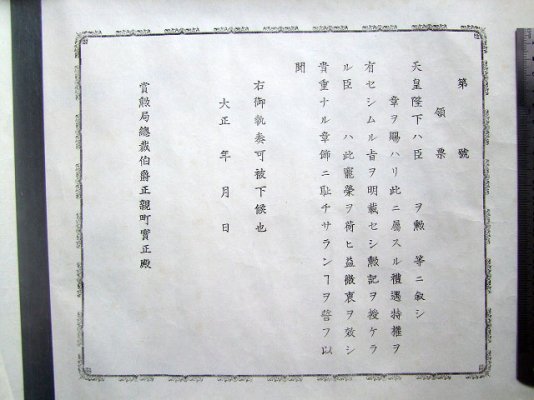 第　　　號
領票
天皇陛下ハ臣　　ヲ勲　等ニ叙シ
章ヲ賜ハリ此ニ屬スル禮遇特權ヲ
有セシムル旨ヲ明載セシ勲記ヲ授ケラ
ル臣　　ハ此寵榮ヲ荷ヒ益微衷ヲ效シ
貴重ナル章飾ニ耻チサランヿヲ誓フ以
聞
右御執奏可被下候也
大正　年　月　日
賞勲局總裁伯爵正親町實正殿